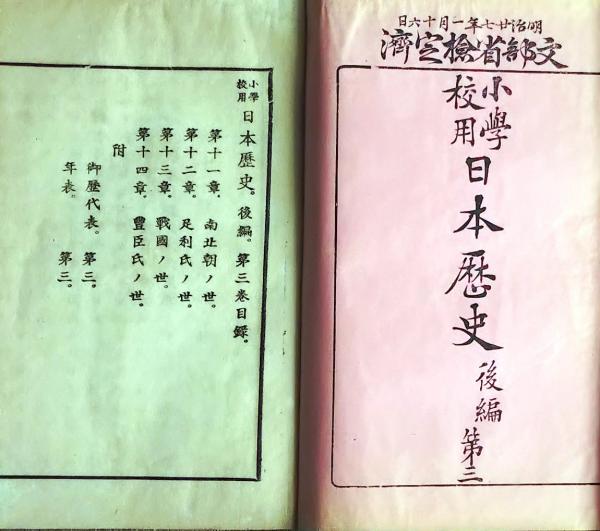 明治廿七年一月十六日
文部省檢定濟
小學校用
日本歷史
後編
第三
小學校用 日本歷史。後編。第三卷目錄。
第十一章。南北朝ノ世。
第十二章。足利氏ノ世。
第十三章。戰國ノ世。
第十四章。豐臣氏ノ世。
附
御歷代表。第三。
年表。第三。